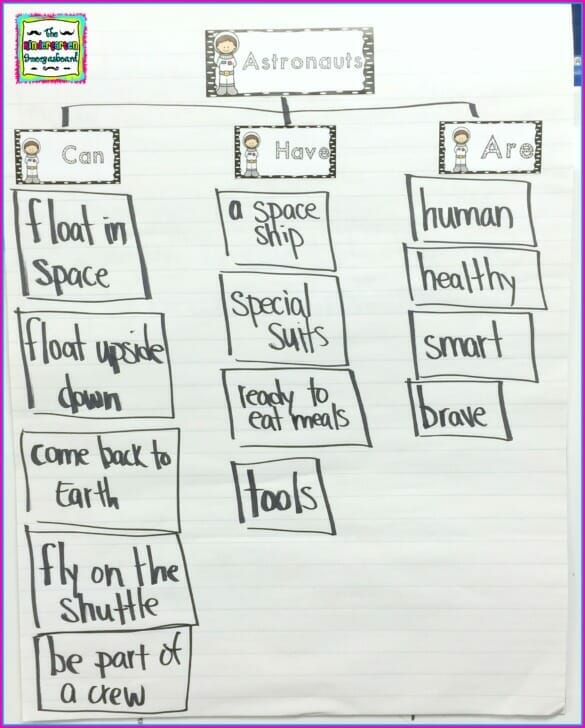 The
Kindergarten
Smorgasboard
Astronauts
Can
float in
space
float upside
down
come back to
Earth
fly on the
shuttle
be part of
a crew
Have
a space
ship
special
suits
ready to
eat meals
tools
Are
human
healthy
smart
brave